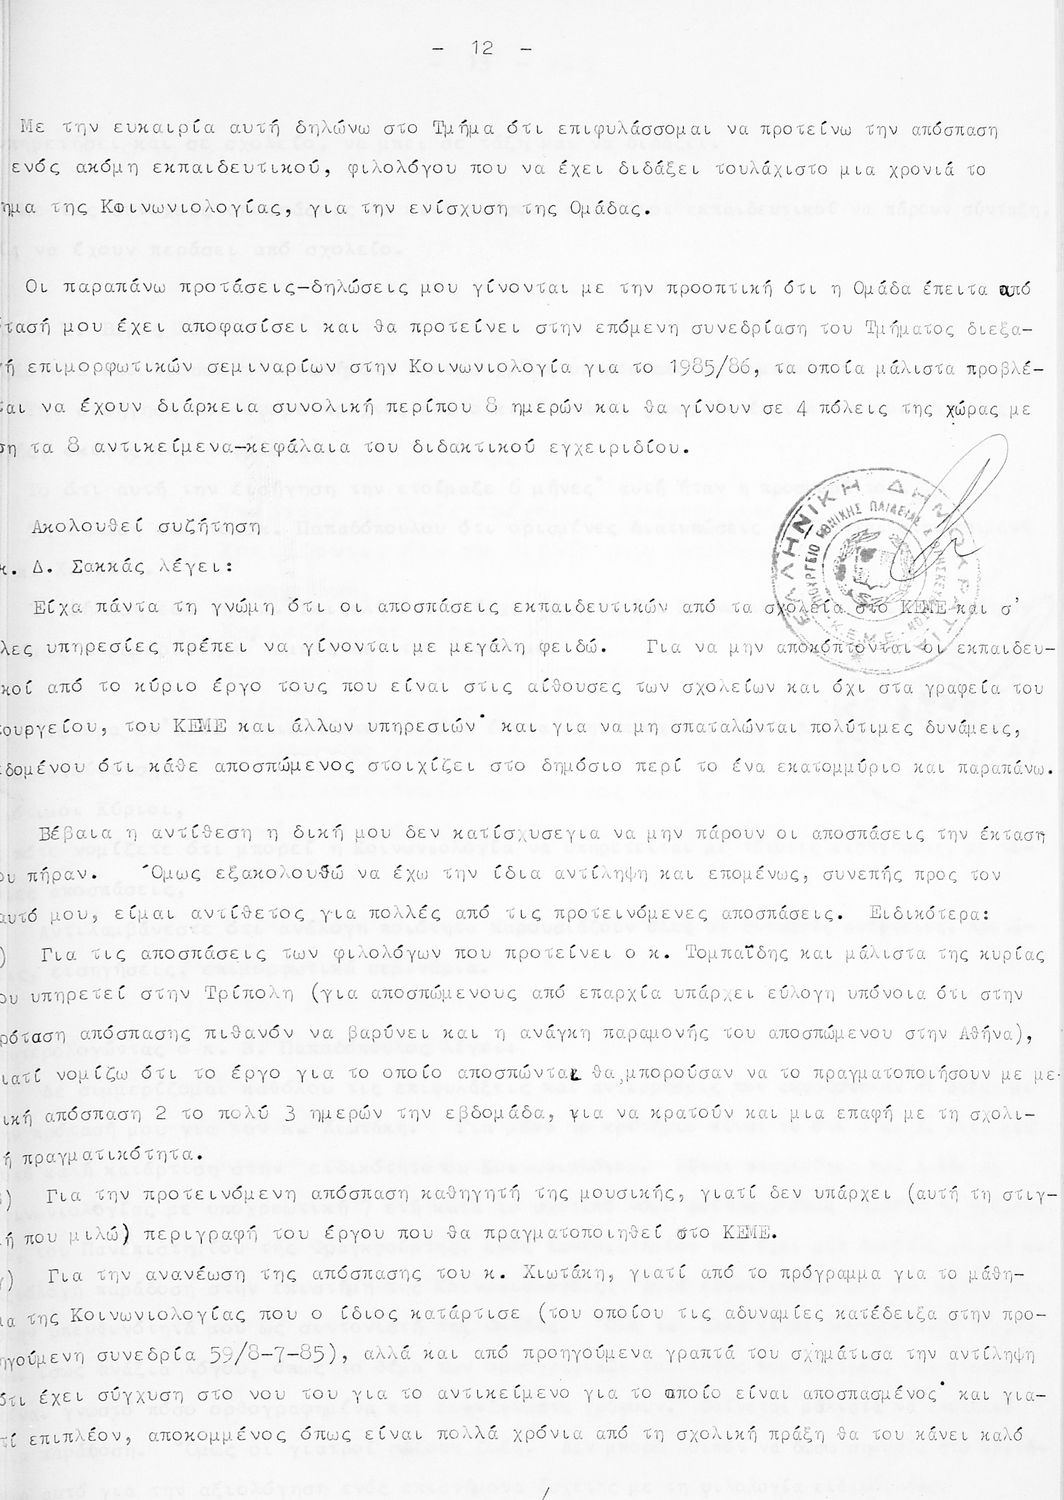 - 12 -
Με την ευκαιρία αυτή δηλώνω στο Τμήμα ότι επιφυλάσσομαι να προτείνω την απόσπαση
ενός ακόμη εκπαιδευτικού, φιλολόγου που να έχει διδάξει τουλάχιστο μια χρονιά το
ημα της Κοινωνιολογίας, για την ενίσχυση της Ομάδας.
Οι παραπάνω προτάσεις-δηλώσεις μου γίνονται με την προοπτική ότι η Ομάδα έπειτα από
τασή μου έχει αποφασίσει και θα προτείνει στην επόμενη συνεδρίαση του Τμήματος διεξα-
γή επιμορφωτικών σεμιναρίων στην Κοινωνιολογία για το 1985/86, τα οποία μάλιστα προβλέ-
ται να έχουν διάρκεια συνολική περίπου 8 ημερών και θα γίνουν σε 4 πόλεις της χώρας με
ση τα 8 αντικείμενα-κεφάλαια του διδακτικού εγχειριδίου.
Ακολουθεί συζήτηση
κ. Δ. Σακκάς λέγει:
Είχα πάντα τη γνώμη ότι οι αποσπάσεις εκπαιδευτικών από τα σχολεία στο ΚΕΜΕ και σ'
λες υπηρεσίες πρέπει να γίνονται με μεγάλη φειδώ. Για να μην αποκόπτονται οι εκπαιδευ-
κοί από το κύριο έργο τους που είναι στις αίθουσες των σχολείων και όχι στα γραφεία του
ουργείου, του ΚΕΜΕ και άλλων υπηρεσιών· και για να μη σπαταλώνται πολύτιμες δυνάμεις,
εδομένου ότι κάθε αποσπώμενος στοιχίζει στο δημόσιο περί το ένα εκατομμύριο και παραπάνω.
Βέβαια η αντίθεση η δική μου δεν κατίσχυσεγια να μην πάρουν οι αποσπάσεις την έκταση
ου πήραν. Όμως εξακολουθώ να έχω την ίδια αντίληψη και επομένως, συνεπής προς τον
αυτό μου, είμαι αντίθετος για πολλές από τις προτεινόμενες αποσπάσεις. Ειδικότερα:
) Για τις αποσπάσεις των φιλολόγων που προτείνει ο κ. Τομπαΐδης και μάλιστα της κυρίας
ου υπηρετεί στην Τρίπολη (για αποσπώμενους από επαρχία υπάρχει εύλογη υπόνοια ότι στην
ρόταση απόσπασης πιθανόν να βαρύνει και η ανάγκη παραμονής του αποσπώμενου στην Αθήνα),
ιατί νομίζω ότι το έργο για το οποίο αποσπώνται θα μπορούσαν να το πραγματοποιήσουν με με-
ική απόσπαση 2 το πολύ 3 ημερών την εβδομάδα, για να κρατούν και μια επαφή με τη σχολι-
ή πραγματικότητα.
) Για την προτεινόμενη απόσπαση καθηγητή της μουσικής, γιατί δεν υπάρχει (αυτή τη στιγ-
μή που μιλώ) περιγραφή του έργου που θα πραγματοποιηθεί στο ΚΕΜΕ.
γ) Για την ανανέωση της απόσπασης του κ. Χιωτάκη, γιατί από το πρόγραμμα για το μάθη-
μα της Κοινωνιολογίας που ο ίδιος κατάρτισε (του οποίου τις αδυναμίες κατέδειξα στην προ-
ηγούμενη συνεδρία 59/8-7-85), αλλά και από προηγούμενα γραπτά του σχημάτισα την αντίληψη
ότι έχει σύγχυση στο νου του για το αντικείμενο για το οποίο είναι αποσπασμένος· και για-
τί επιπλέον, αποκομμένος όπως είναι πολλά χρόνια από τη σχολική πράξη θα του κάνει καλό